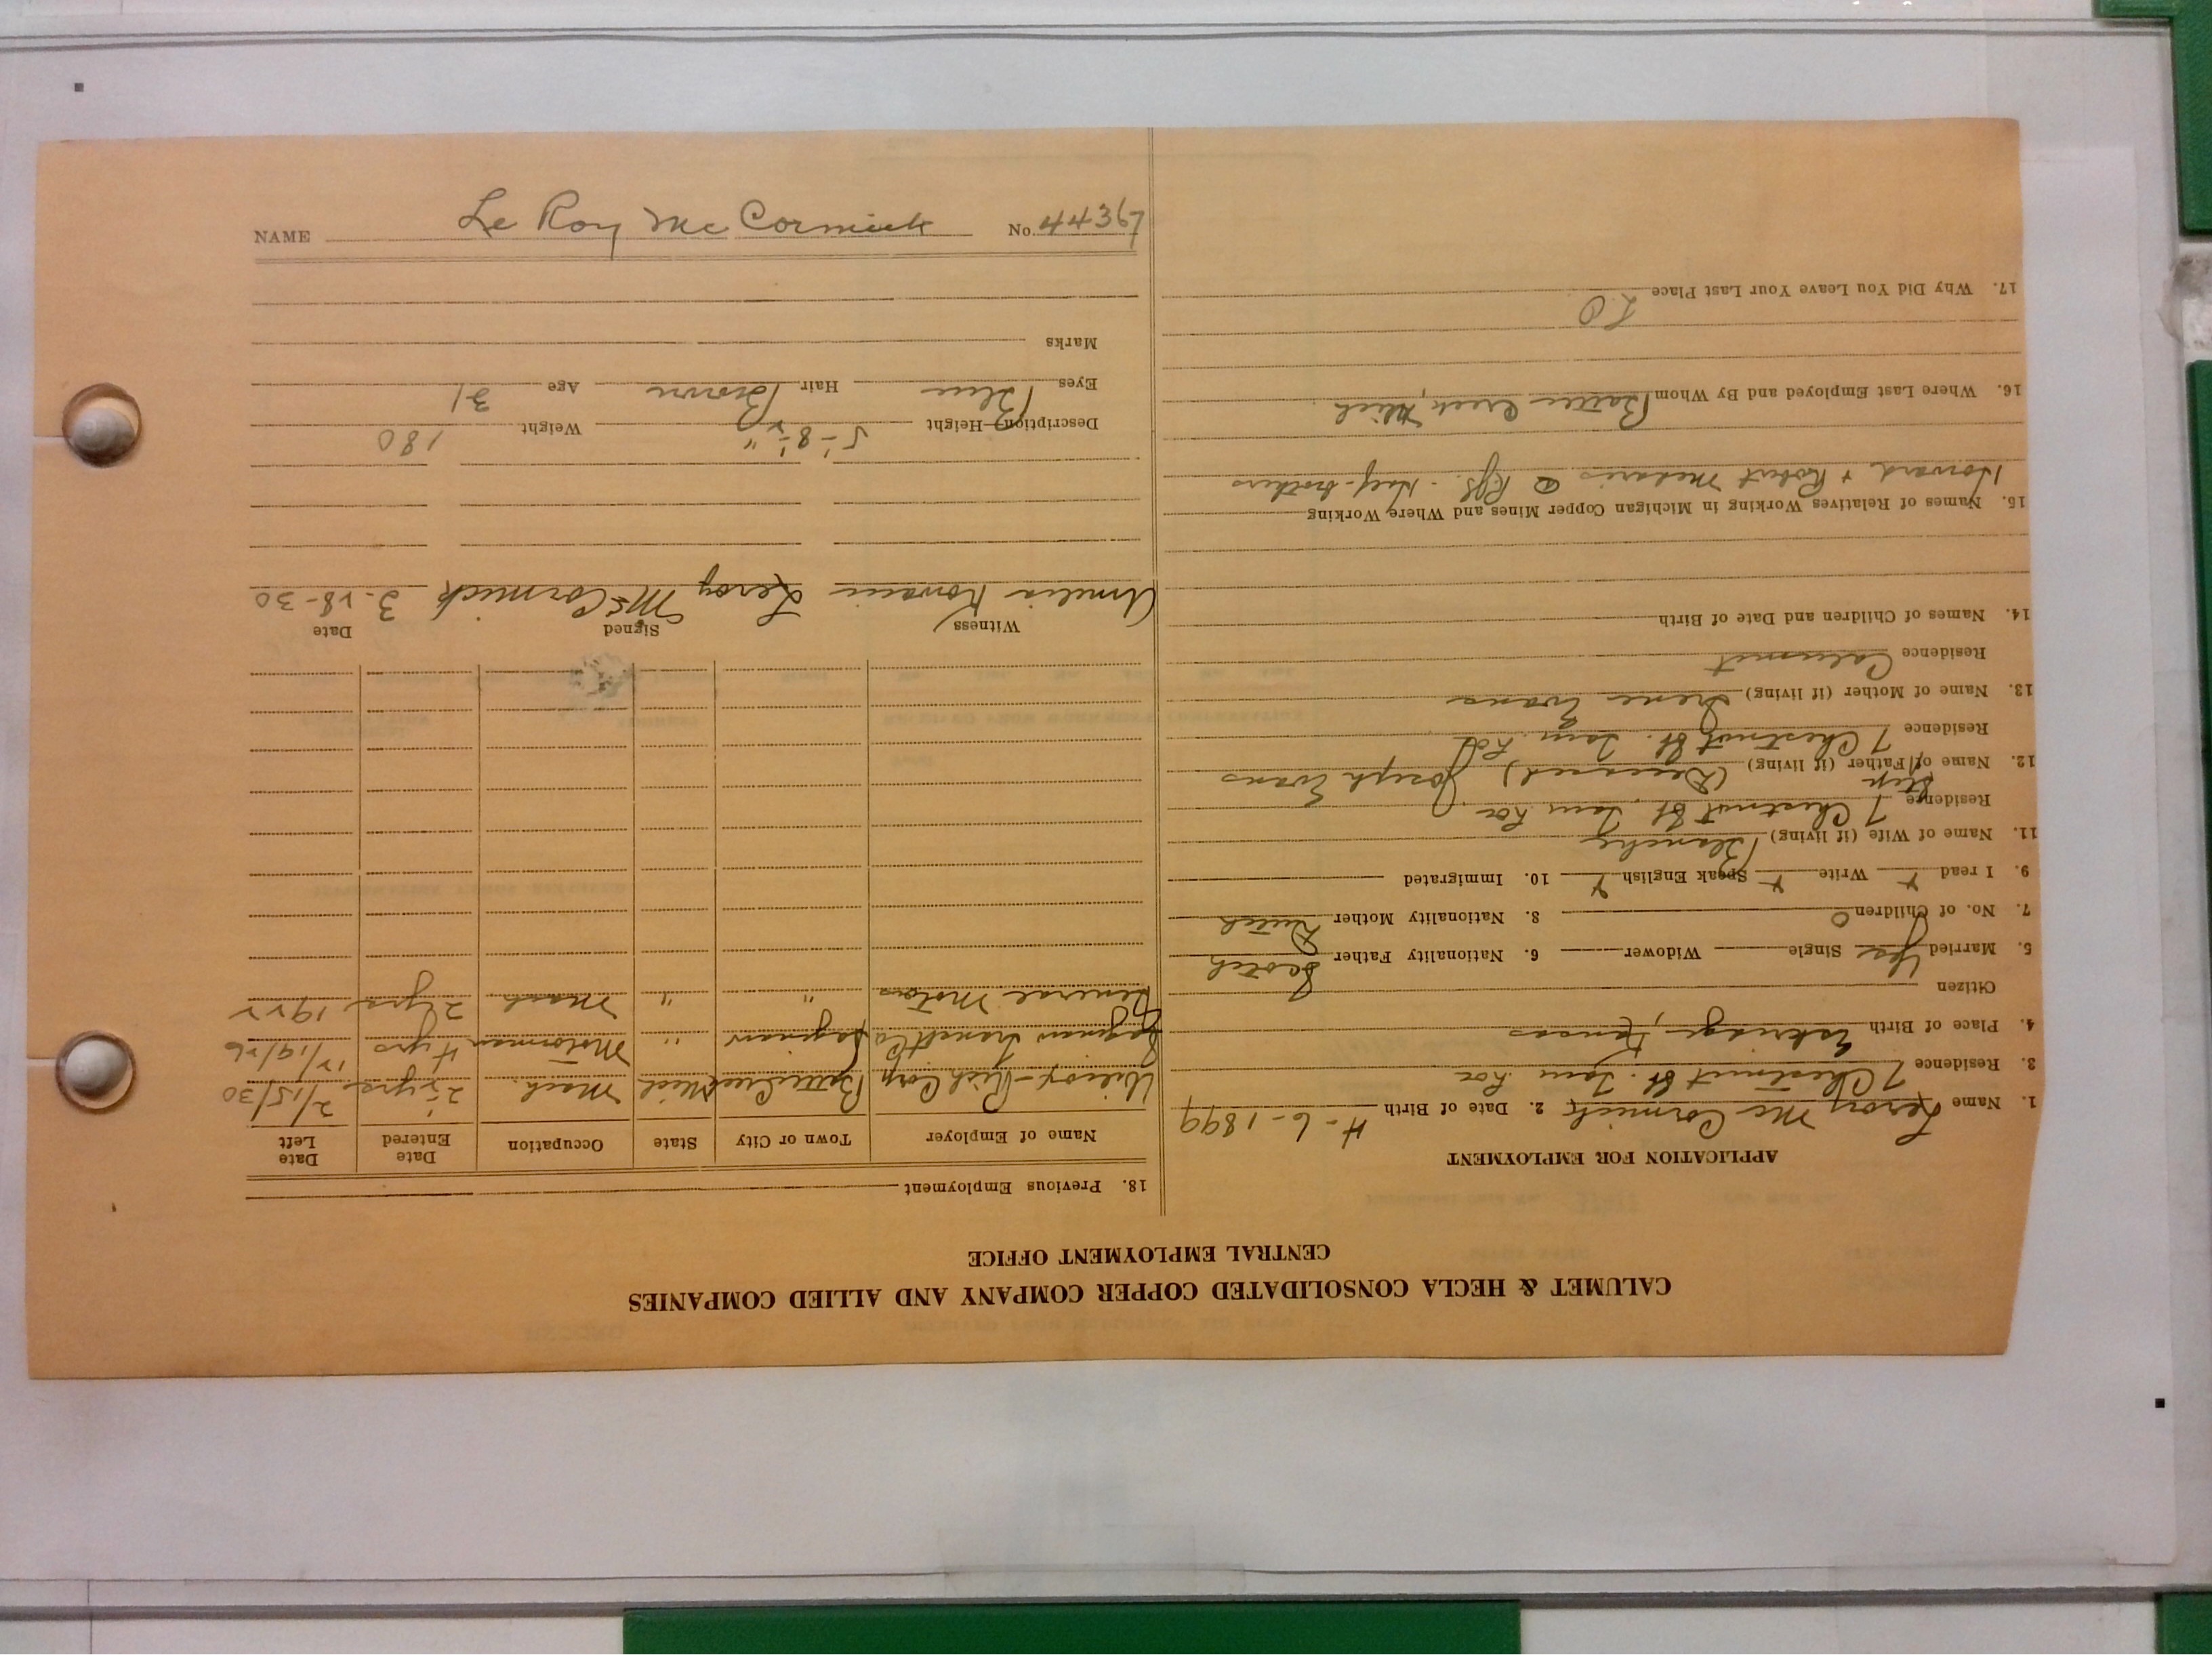 CALUMET & HECLA CONSOLIDATED COPPER COMPANY AND ALLIED COMPANIES
CENTRAL EMPLOYMENT OFFICE
APPLICATION FOR EMPLOYMENT
1. Name Leroy McCormick 2. Date of Birth 4-6-1899
3. Residence 7 Chestnut St. Tam. Loc
4. Place of Birth Eskridge, Kansas
Citizen
5. Married Yes Single Widower 6. Nationality Father Scotch
7. No. of Children 0 8. Nationality Mother Dutch
9. I read Y Write Y Speak English Y 10. Immigrated
11. Name of Wife (if living) Blanche
Residence 7 Chestnut St. Tam Loc
Step
12. Name of Father (if living) (Deceased) Joseph Evans
Residence 7 Chestnut St. Tam. Loc
13. Name of Mother (if living) Irene Evans
Residence Calumet
14. Names of Children and Date of Birth
15. Names of Relatives Working in Michigan Copper Mines and Where Working
Howard + Robert @ - Half-brothers
16. Where Last Employed and By Whom Battle Creek, Mich
17. Why Did You Leave Your Last Place L.O
18. Previous Employment
Name of Employer Town or City State Occupation Date Entered Date Left
Rich Corp Battle Creek Mich Mach. 2½ yrs 2/15/30
Saginaw Transit Co Saginaw " Motorman 4 yrs 12/19/26
General Motors " " Mach 2 yrs 1922
Witness Signed Date
Amelia Leroy McCormick 3-28-30
Description—Height 5'-8½" Weight 180
Eyes Blue Hair Brown Age 31
Marks
NAME Le Roy McCormick No. 44367